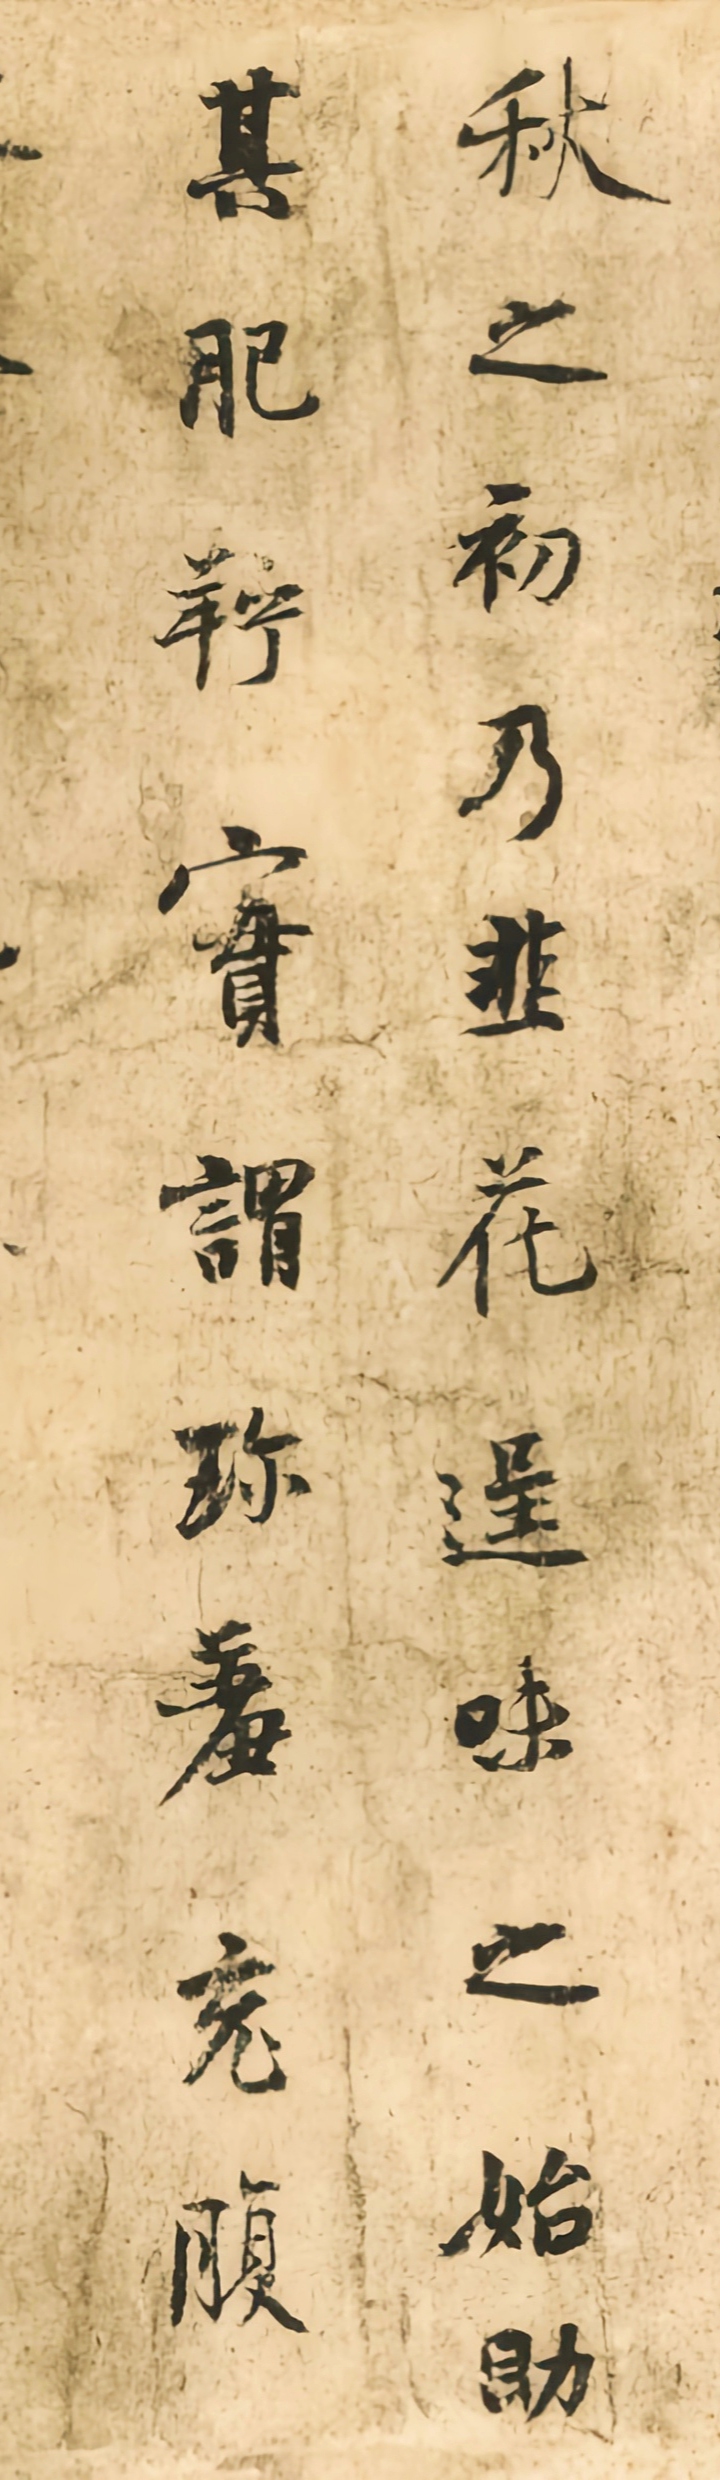 秋之初乃韭花逞味之始助
其肥羜實謂珎羞充腹